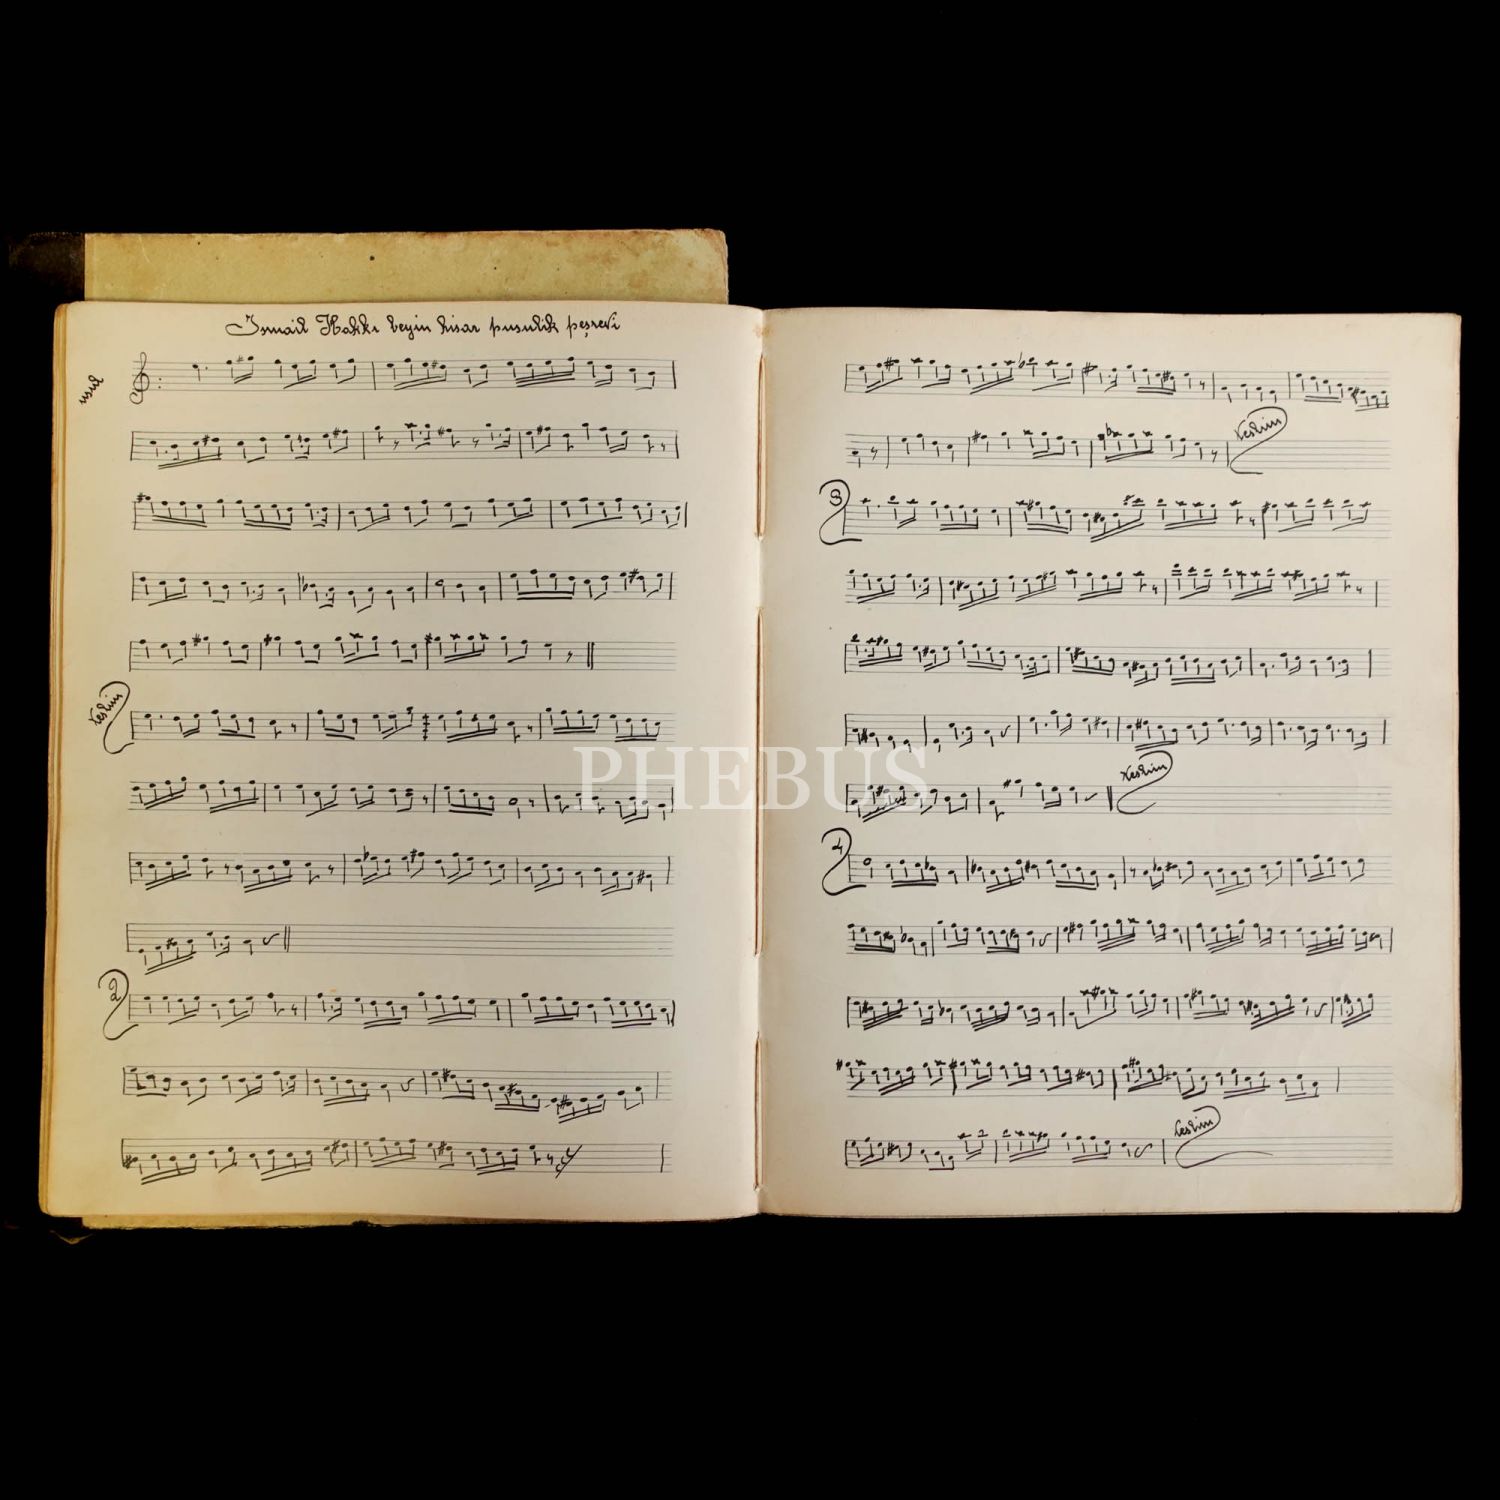 İsmail Hakkı beyin hisar pusulik peşrevi
usul
teslim
2
teslim
3
teslim
4
teslim
PHEBUS